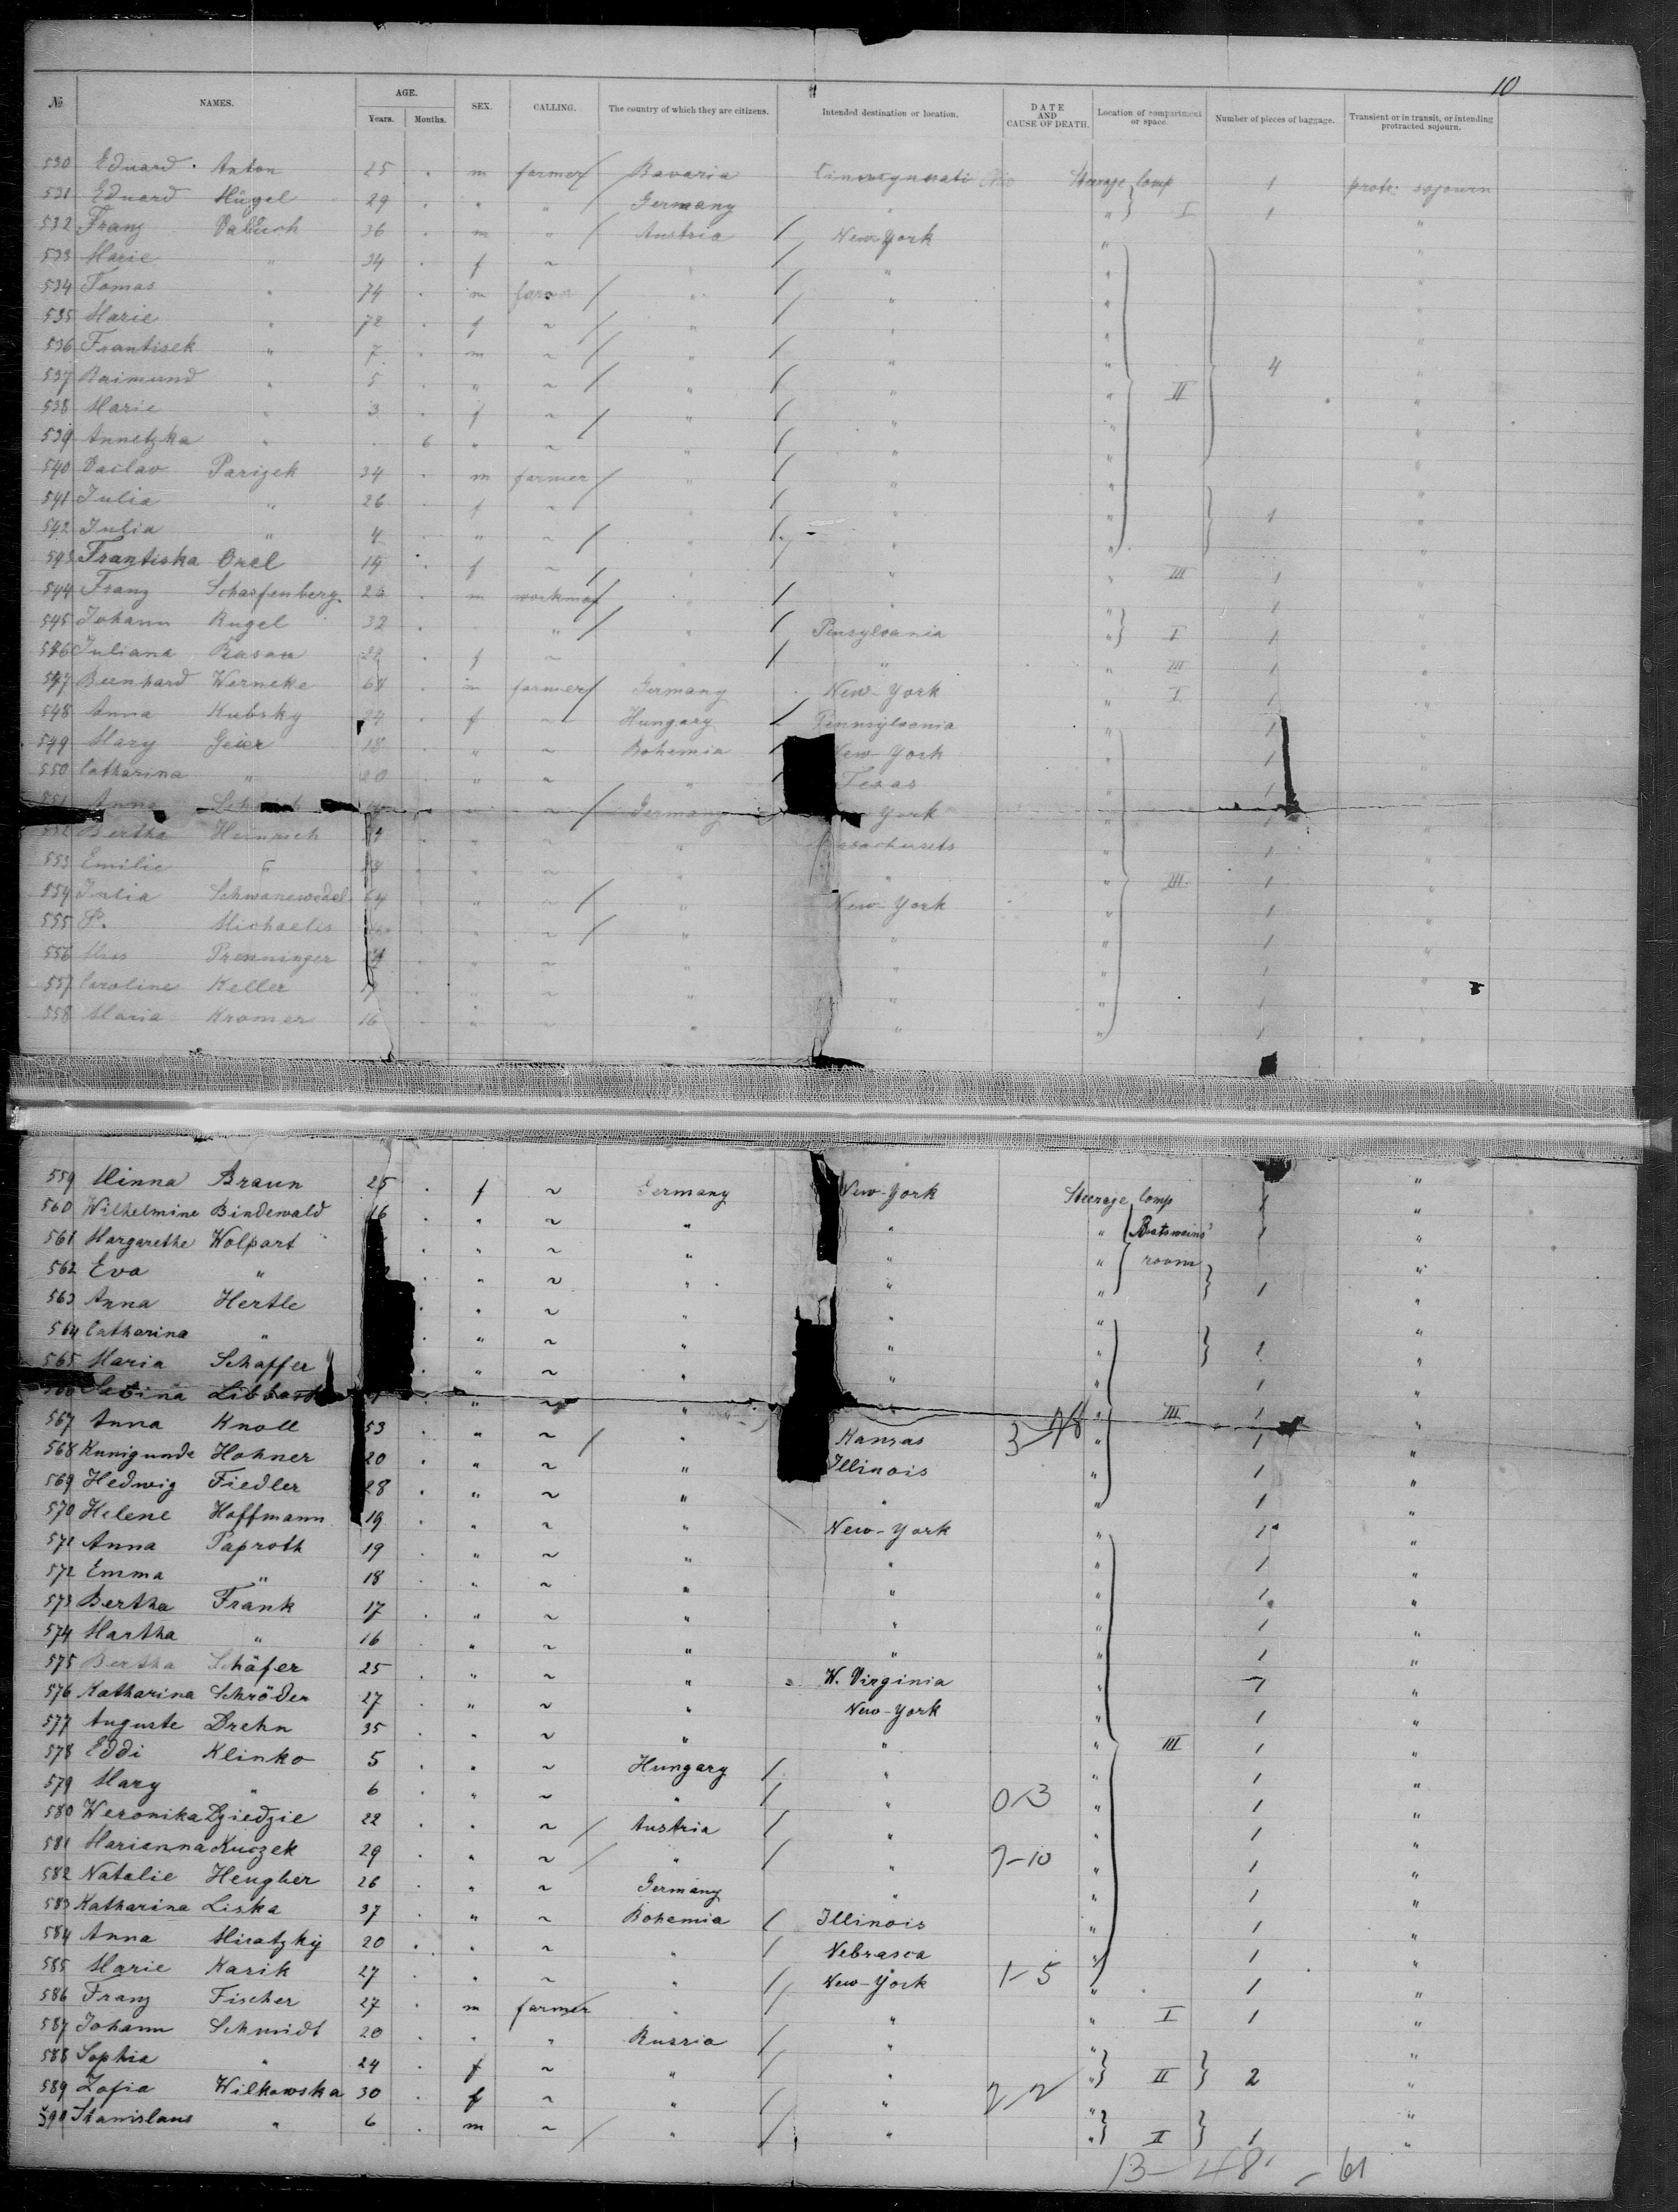 10
№ NAMES. AGE. Years. Months. SEX. CALLING. The country of which they are citizens. Intended destination or location. DATE AND CAUSE OF DEATH. Location of compartment or space. Number of pieces of baggage. Transient or in transit, or intending protracted sojourn.
530 Eduard Anton 25 . m farmer / Bavaria Steerage Comp 1 protr. sojourn
531 Eduard Hügel 29 . " " / Germany " " } I 1 "
532 Franz 36 . m " / Austria / New-York " "
533 Marie " 34 . f ~ " / " " "
534 Tomas " 74 . m farmer / " / " " "
535 Marie " 72 . f ~ / " / " " "
536 Frantisek " 7 . m ~ / " / " " 4 "
537 Raimund " 5 . " ~ / " / " " II "
538 Marie " 3 . f ~ / " / " " "
539 Annetzka " . 6 " ~ " / " " "
540 Vaclav Parizek 34 . m farmer / " / " " "
541 Julia " 26 . f ~ " / " " 1 "
542 Julia " 4 . " ~ / " / " " "
543 Frantiska Orel 19 . f ~ / " / " " III 1 "
544 Franz Scharfenberg . m workman / " / " " 1 "
545 Johann Rugel 32 . " / " / Pensylvania " } I 1 "
546 Juliana . f ~ " / " " III 1 "
547 Bernhard Werneke 68 . m farmer / Germany New-York " I 1 "
548 Anna Kubsky 24 . f ~ Hungary / Pennsylvania " 1 "
549 Mary Geier 18 . " ~ Bohemia / New-York " 1 "
550 Catharina " 20 " ~ " / Texas " 1 "
551 Anna " ~ / Germany York " 1 "
552 Bertha Heinrich " ~ " " 1 "
553 Emilie " " ~ " " " 1 "
554 Julia Schwanewedel 64 . " ~ / " New-York " III 1 "
555 P. Michaelis " ~ / " " " 1 "
556 Miss Prenninger " ~ " " " 1 "
557 Caroline Keller " ~ " " " 1 "
558 Maria Kromer 16 " ~ " " " 1 "
559 Minna Braun 25 . f ~ Germany New-York Steerage Comp 1 "
560 Wilhelmine Bindewald 16 . " ~ " " " { Boatswains' 1 "
561 Margarethe Wolpart . " ~ " " " room "
562 Eva " . " ~ " " " } 1 "
563 Anna Hertle . " ~ " " " "
564 Catharina " . " ~ " " " } 1 "
565 Maria Schaffer . " ~ " " " 1 "
566 Sabina . " ~ " " " III 1 "
567 Anna Knoll 53 . " ~ / " Kansas " 1 "
568 Kunigunde Hohner 20 . " ~ " Illinois " 1 "
569 Hedwig Fiedler 28 . " ~ " " " 1 "
570 Helene Hoffmann 19 . " ~ " New-York " 1 "
571 Anna Paproth 19 . " ~ " " " 1 "
572 Emma " 18 . " ~ " " " 1 "
573 Bertha Frank 17 . " ~ " " " 1 "
574 Martha " 16 . " ~ " " " 1 "
575 Bertha Schäfer 25 . " ~ " W. Virginia " "
576 Katharina Schröder 27 . " ~ " New-York " 1 "
577 Auguste Drehn 35 . " ~ " " " III 1 "
578 Eddi Klinko 5 . " ~ Hungary / " " 1 "
579 Mary " 6 . " ~ " / " 0-3 " 1 "
580 Weronika Dziedzie 22 . " ~ / Austria / " " 1 "
581 Marianna Kuczek 29 . " ~ / " / " 7-10 " 1 "
582 Natalie Hengher 26 . " ~ Germany " " 1 "
583 Katharina Liska 37 . " ~ Bohemia / Illinois " 1 "
584 Anna Miratzky 20 . " ~ " / Nebrasca " 1 "
585 Marie Karik 27 . " ~ " / New-York 1-5 " 1 "
586 Franz Fischer 27 . m farmer " / " " I 1 "
587 Johann Schmidt 20 . " " Russia / " " "
588 Sophia " 24 . f ~ " / " " } II } 2 "
589 Zofia Wilkowska 30 . f ~ " / " " "
590 Stanislaus " 6 . m ~ / " / " " } II } 1 "
13-48 - 61